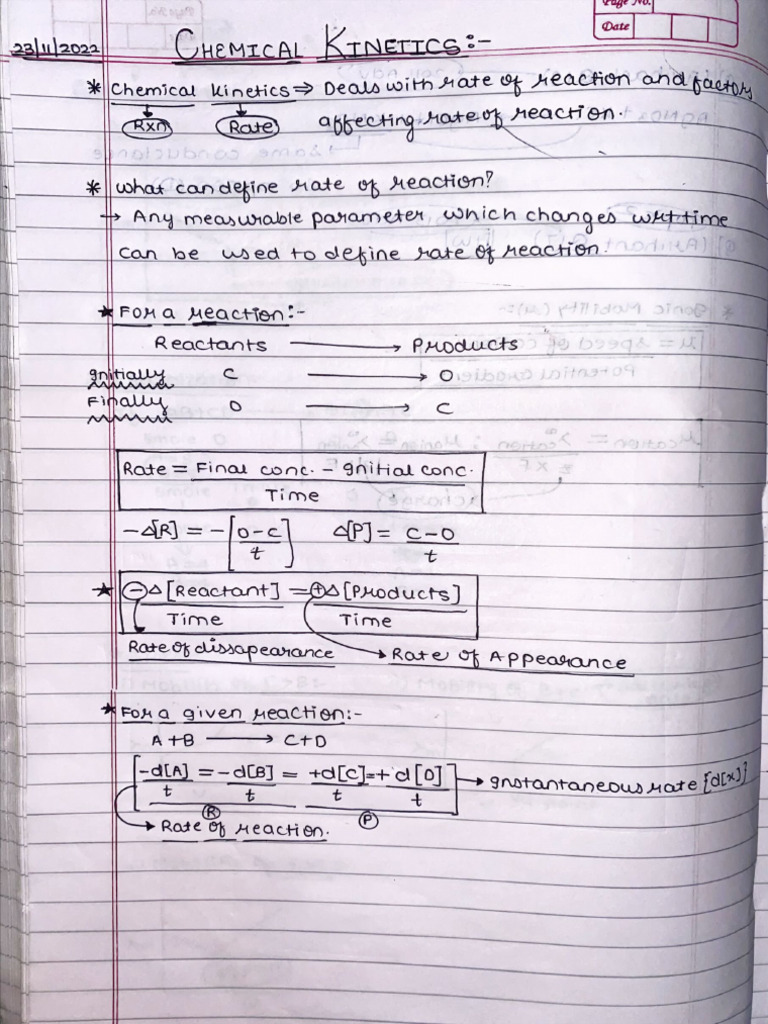 Page No.
Date
23/11/2022 CHEMICAL KINETICS:-
* Chemical Kinetics ⇒ Deals with rate of reaction and factors
Rxn Rate affecting rate of reaction.
* What can define rate of reaction?
→ Any measurable parameter which changes wrt time
can be used to define rate of reaction.
★ For a reaction:-
Reactants → Products
Initially C → 0
Finally 0 → C
Rate = Final conc. - Initial conc.
Time
-Δ[R] = -[0-C/t] Δ[P] = C-0/t
★ -Δ[Reactant] = +Δ[Products]
Time Time
Rate of dissapearance → Rate of Appearance
★ For a given reaction:-
A+B → C+D
[-d[A]/t = -d[B]/t = +d[C]/t = +d[D]/t] → Instantaneous rate {d[x]}
R P
→ Rate of reaction.